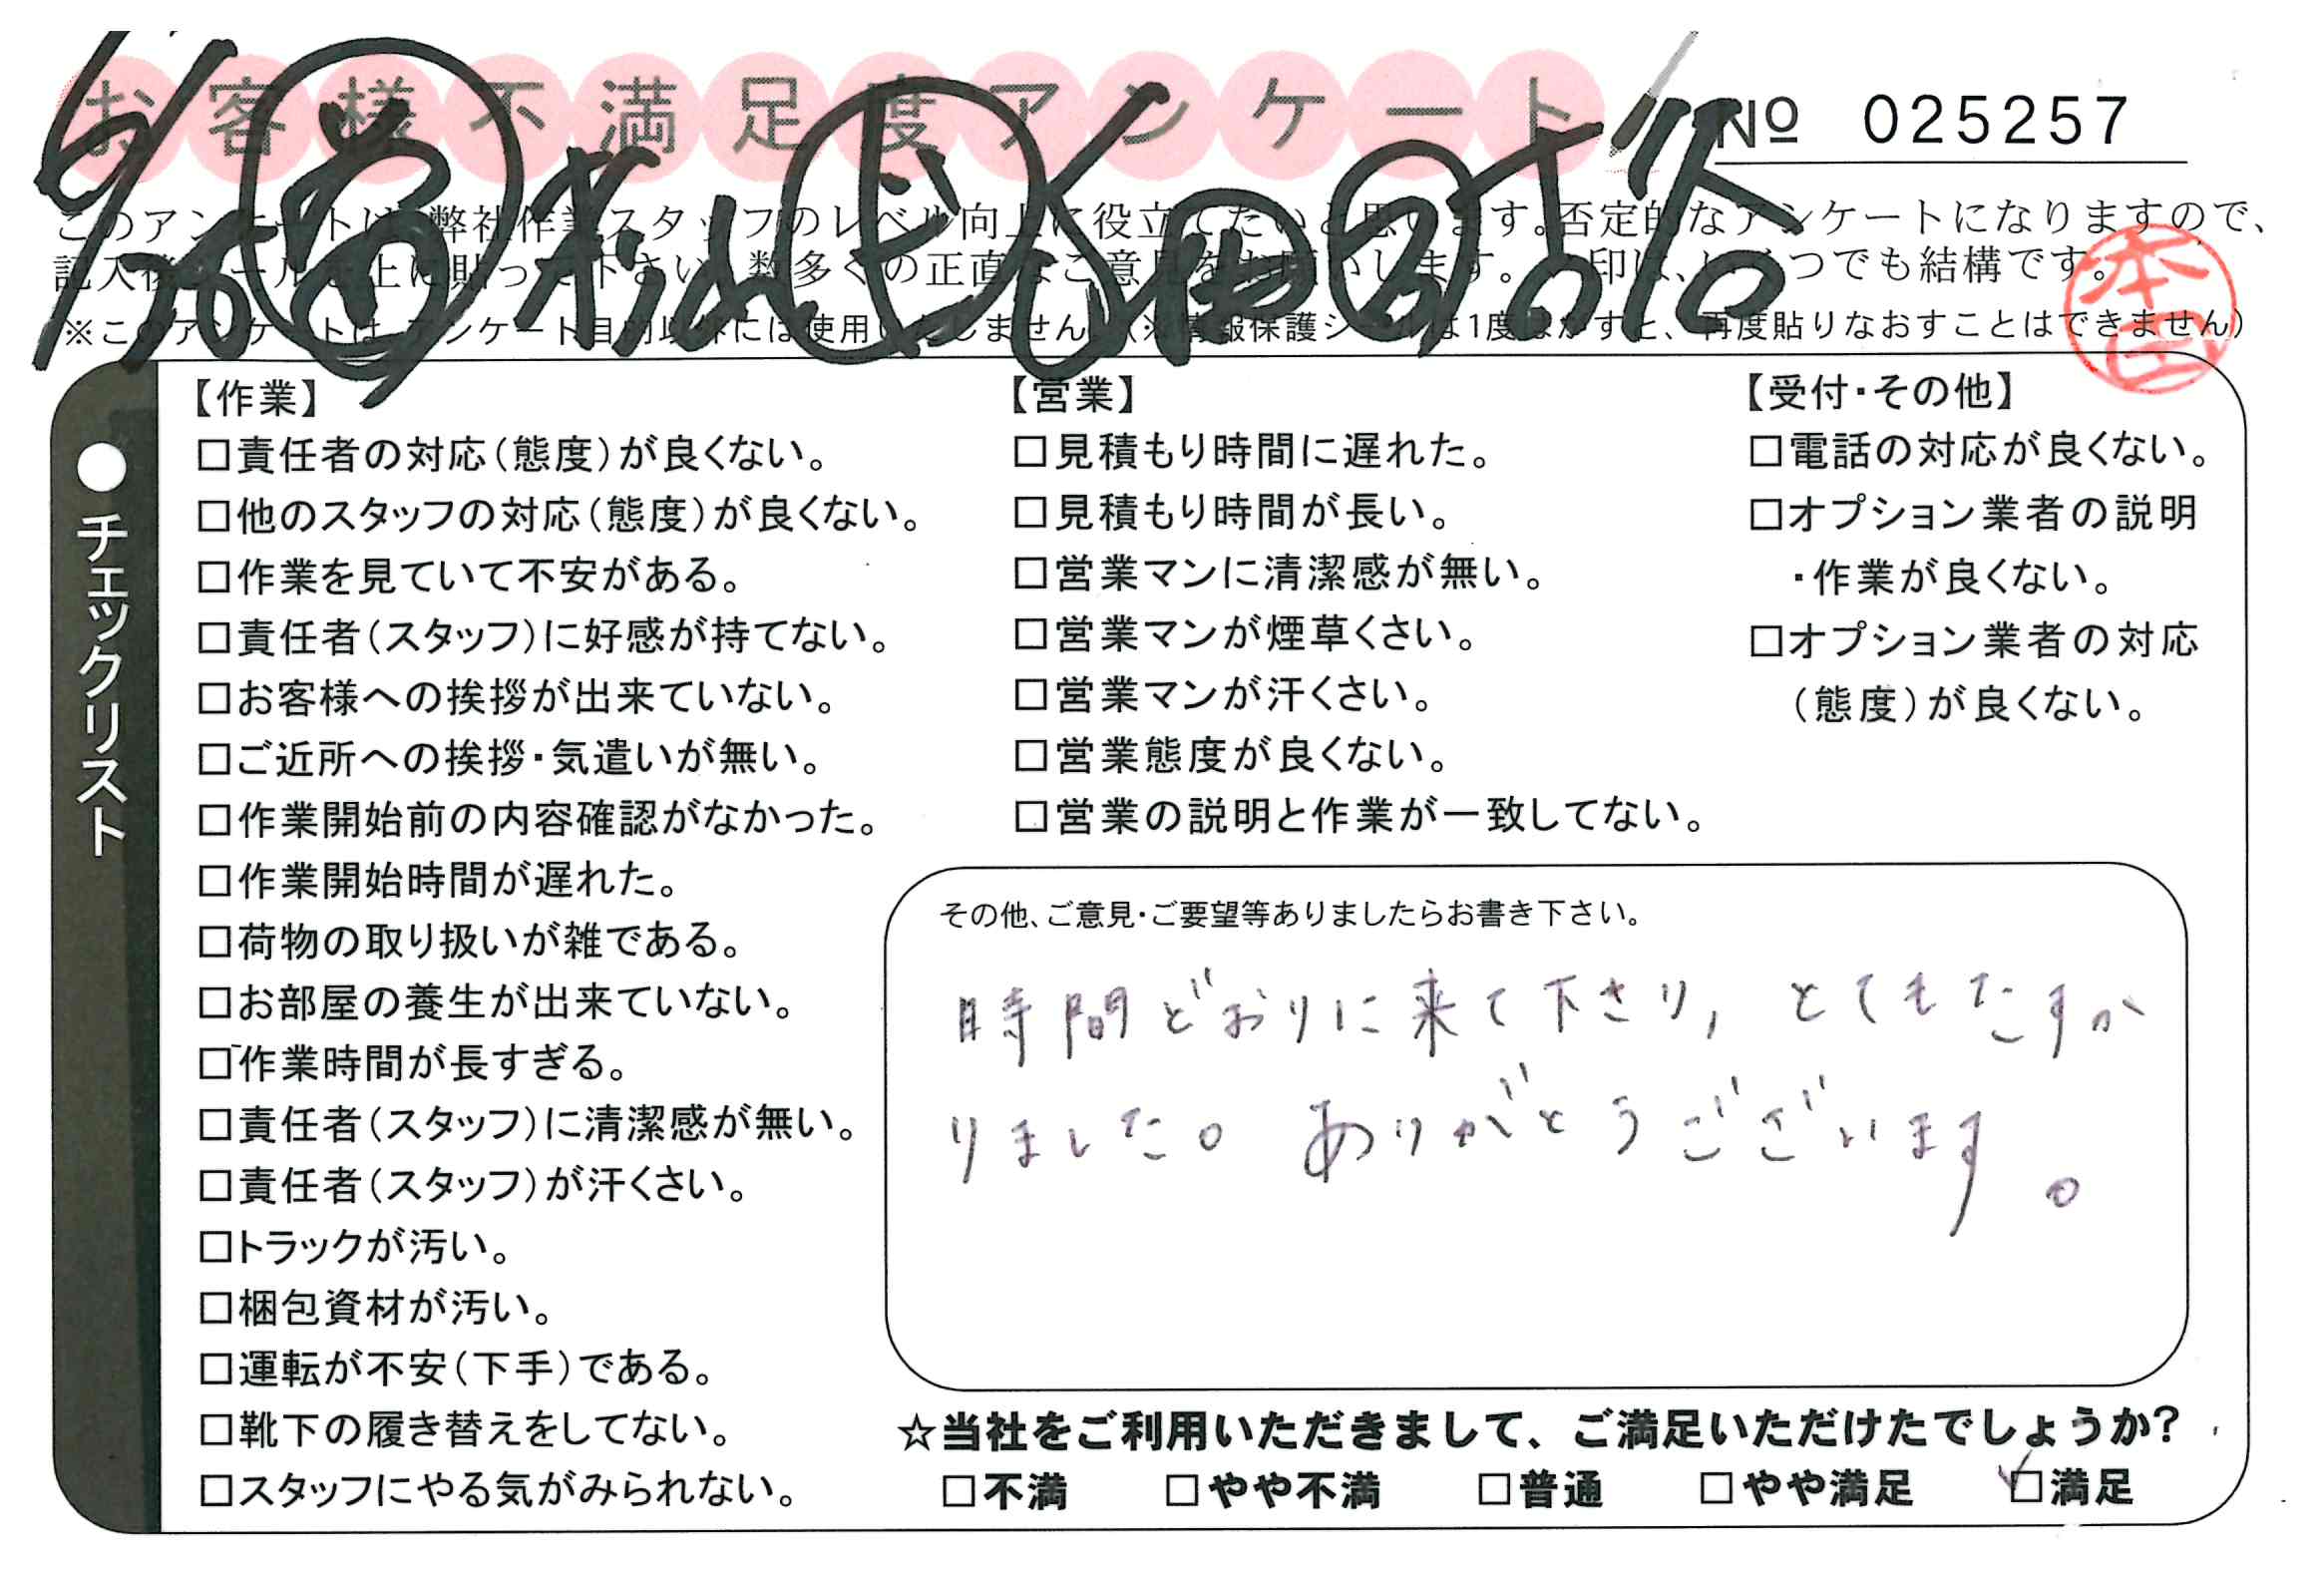 お客様不満足度アンケート
№ 025257
このアンケートは、弊社作業スタッフのレベル向上に役立てたいと思います。否定的なアンケートになりますので、
記入後シールを上に貼って下さい。数多くの正直なご意見をお願いします。 印は、いくつでも結構です。
※このアンケートは、アンケート目的以外には使用いたしません。(※情報保護シールは1度はがすと、再度貼りなおすことはできません)
●チェックリスト
【作業】
□責任者の対応(態度)が良くない。
□他のスタッフの対応(態度)が良くない。
□作業を見ていて不安がある。
□責任者(スタッフ)に好感が持てない。
□お客様への挨拶が出来ていない。
□ご近所への挨拶・気遣いが無い。
□作業開始前の内容確認がなかった。
□作業開始時間が遅れた。
□荷物の取り扱いが雑である。
□お部屋の養生が出来ていない。
□作業時間が長すぎる。
□責任者(スタッフ)に清潔感が無い。
□責任者(スタッフ)が汗くさい。
□トラックが汚い。
□梱包資材が汚い。
□運転が不安(下手)である。
□靴下の履き替えをしてない。
□スタッフにやる気がみられない。
【営業】
□見積もり時間に遅れた。
□見積もり時間が長い。
□営業マンに清潔感が無い。
□営業マンが煙草くさい。
□営業マンが汗くさい。
□営業態度が良くない。
□営業の説明と作業が一致してない。
【受付・その他】
□電話の対応が良くない。
□オプション業者の説明
・作業が良くない。
□オプション業者の対応
(態度)が良くない。
その他、ご意見・ご要望等ありましたらお書き下さい。
時間どおりに来て下さり、とてもたすか
りました。ありがとうございます。
☆当社をご利用いただきまして、ご満足いただけたでしょうか?
□不満 □やや不満 □普通 □やや満足 ☑満足